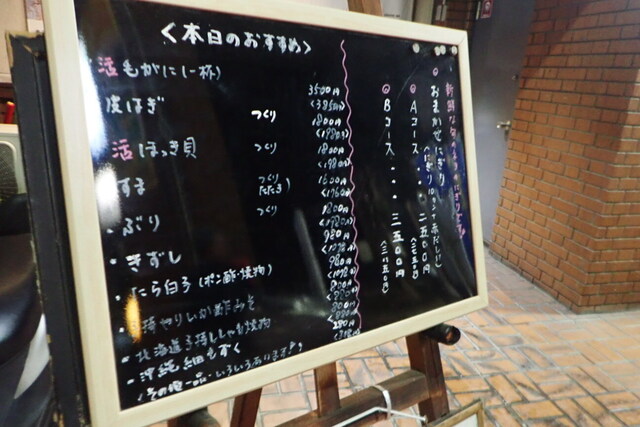 <本日のおすすめ>
活毛がに(一杯) 3500円
(3850円)
皮はぎ つくり 1800円
(1980円)
活ほっき貝 つくり 1800円
(1980円)
すま つくり たたき) 1600円
(1760円)
・ぶり つくり 1800円
(1980円)
・きずし 980円
(1078円)
・たら白子(ポン酢・焼物) 980円
(1078円)
子持やりいか酢みそ 800円
(880円)
・北海道子持ししゃも焼物 800円
(880円)
・沖縄細もずく 280円
(その他一品いろいろあります!)
おまかせにぎり
Aコース・・・二五〇〇円
(にぎり10カン、赤だし)
(二七五〇円)
Bコース・・・三五〇〇円
(三八五〇円)